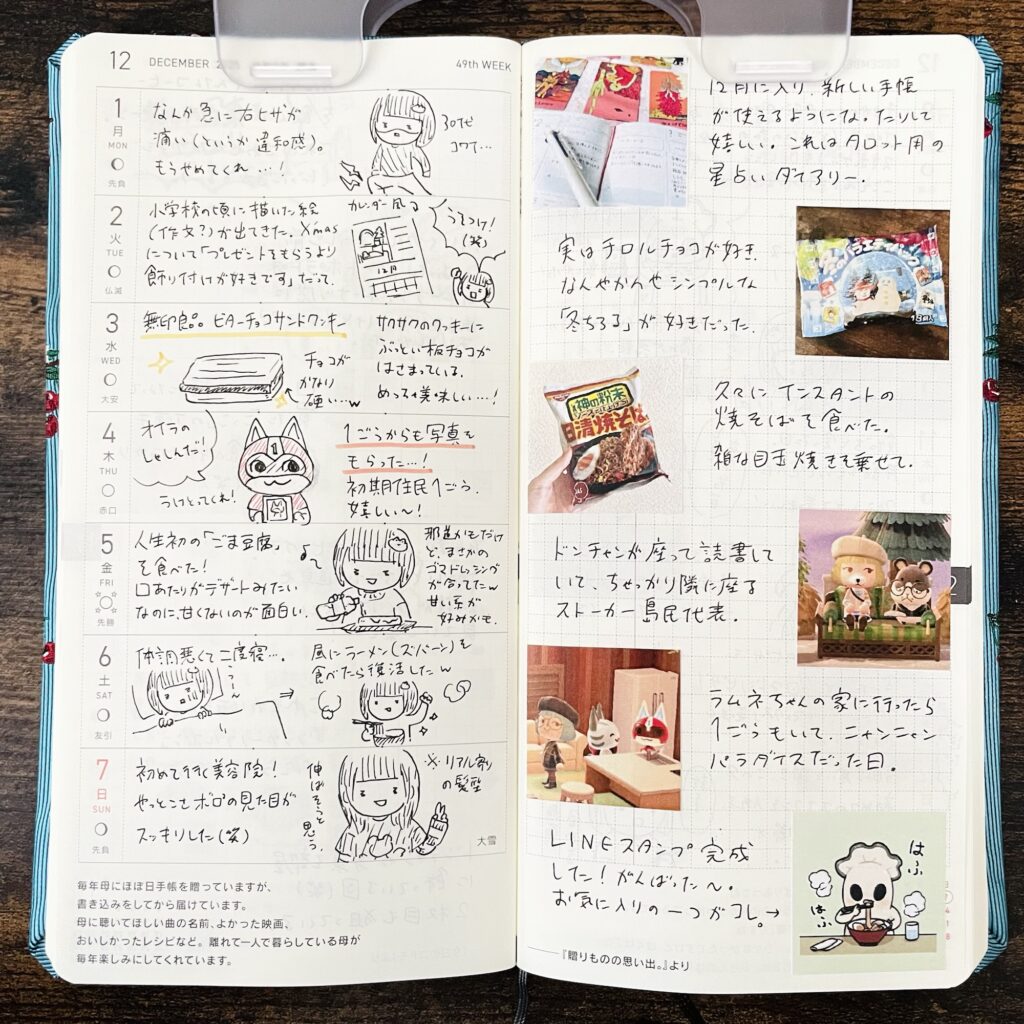 12 DECEMBER 2
49th WEEK
1
月
MON
先負
なんか急に右ヒザが
痛い(というか違和感)。
もうやめてくれ…!
30代
コワ…
2
火
TUE
仏滅
小学校の頃に描いた絵
(作文?)が出てきた。Xmas
について「プレゼントをもらうより
飾り付けが好きです」だって。
カレンダー風
12月
うそつけ!
(笑)
3
水
WED
大安
無印良品。ビターチョコサンドクッキー
チョコが
かなり
硬い…w
サクサクのクッキーに
ぶっとい板チョコが
はさまっている。
めっさ美味しい…!
4
木
THU
赤口
オイラの
しゃしんだ!
うけとってくれ!
1
1ごうからも写真を
もらった…!
初期住民1ごう。
嬉しい〜!
5
金
FRI
先勝
人生初の「ごま豆腐」
を食べた!
口あたりがデザートみたい
なのに、甘くないのが面白い。
邪道かもだけ
ど、まさかの
ゴマドレッシング
が合ってたw
甘い系が
好みかも。
6
土
SAT
友引
体調悪くて二度寝…。
うーん
⇒
昼にラーメン(ズバーン)を
食べたら復活したw
7
日
SUN
先負
初めて行く美容院!
やっとこさボロの見た目が
スッキリした(笑)
伸ばそうと
思う。
※リアル寄り
の髪型
大雪
毎年母にほぼ日手帳を贈っていますが、
書き込みをしてから届けています。
母に聴いてほしい曲の名前、よかった映画、
おいしかったレシピなど。離れて一人で暮らしている母が
毎年楽しみにしてくれています。
12月に入り、新しい手帳
が使えるようになったりして
嬉しい。これはタロット用の
星占いダイアリー。
実はチロルチョコが好き。
なんやかんやシンプルな
「冬ちろる」が好きだった。
バラエティパック
久々にインスタントの
焼そばを食べた。
雑な目玉焼きを乗せて。
神の粉末
日清焼そば
ドンチャンが座って読書して
いて、ちゃっかり隣に座る
ストーカー島民代表。
2
ラムネちゃんの家に行ったら
1ごうもいて、ニャンニャン
パラダイスだった日。
LINEスタンプ完成
した!がんばった〜。
お気に入りの一つがコレ→。
はふ
はふ
『贈りものの思い出。』より